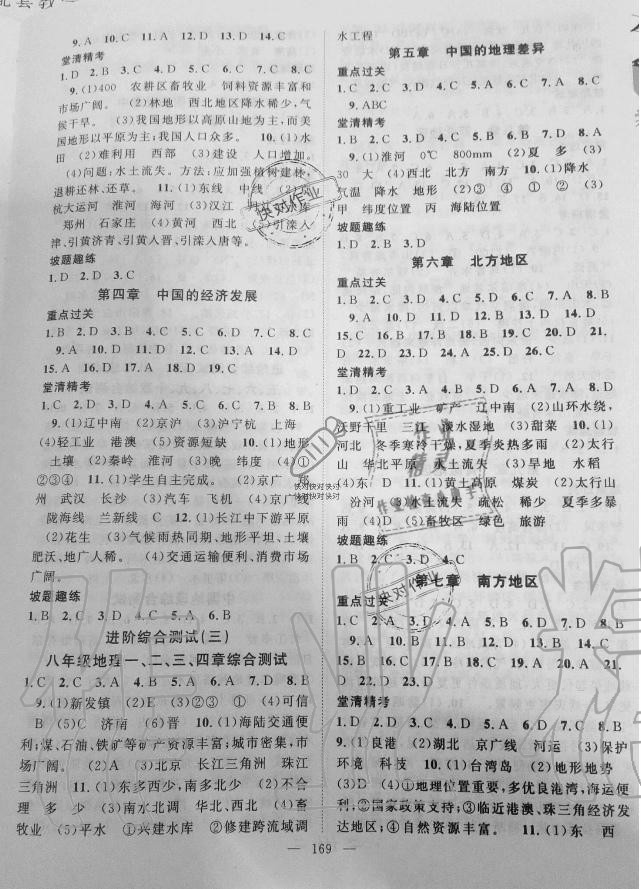 配套教
9.A 10.C 11.A 12.D 13.C 14.D
堂清精考
1.D 2.B 3.C 4.D 5.A 6.D 7.D 8.C
9.(1)400 农耕区畜牧业 饲料资源丰富和
市场广阔。 (2)林地 西北地区降水稀少,气
候干旱。 (3)我国地形以高原山地为主,而美
国地形以平原为主;我国人口众多。 10.(1)水
田 (2)难利用 西部 (3)建设 人口增加。
(4)问题:水土流失。方法:应加强植树建林,
退耕还林、还草。 11.(1)东线 中线
杭大运河 淮河 海河 (3)汉江
郑州 石家庄 (4)黄河 西北 (5)引滦入
津、引黄济青、引黄入晋、引滦入唐等。
坡题趣练
1.D 2.D 3.C
第四章 中国的经济发展
重点过关
1.B 2.D 3.A 4.C 5.D 6.C 7.C 8.C
9.A 10.D 11.C 12.A 13.D 14.D
15.A 16.D 17.A
堂清精考
1.C 2.D 3.D 4.A 5.C 6.B 7.B 8.C
9.(1)辽中南 (2)京沪 (3)沪宁杭 上海
(4)轻工业 港澳 (5)资源短缺 10.(1)地形
土壤 (2)秦岭 淮河 (3)晚 纬度 (4)①
②③④ 11.(1)学生自主完成。 (2)京广 郑
州 武汉 长沙 (3)汽车 飞机 (4)京广线
陇海线 兰新线 C 12.(1)长江中下游平原
(2)花生 (3)气候雨热同期、地形平坦、土壤
肥沃、地广人稀。 (4)交通运输便利、消费市场
广阔。
坡题趣练
1.B 2.D 3.C 4.D 5.A 6.B
进阶综合测试(三)
八年级地理一、二、三、四章综合测试
1.C 2.C 3.D 4.B 5.D 6.A 7.D 8.A
9.(1)新发镇 (2)E (3)②③ ① (4)可信
B (5)C 济南 (6)晋 10.(1)海陆交通便
利;煤、石油、铁矿等矿产资源丰富;城市密集,市
场广阔。 (2)A 北京 长江三角洲 珠江三
角洲 11.(1)东多西少,南多北少 (2)不合
理 多 少 (3)水田 湖南 华北、西北 (4)畜
牧业 (5)平水 ①兴建水库 ②修建跨流域调
水工程
第五章 中国的地理差异
重点过关
1.C 2.C 3.C 4.A 5.B 6.C 7.D 8.D
9.ABC
堂清精考
9.(1)淮河 0℃ 800mm (2)夏 多 (3)
30 大 (4)西北 北方 南方 10.(1)降水
气温 降水 地形 (2)③ ④ ① ② (3)
甲 纬度位置 丙 海陆位置
坡题趣练
1.D 2.B 3.D
第六章 北方地区
重点过关
1.B 2.C 3.C 4.D 5.D 6.C 7.A 8.B
9.D 10.C 11.B 12.B 13.D 14.D
15.C 16.C 17.B 18.C 19.D 20.D 21.
D 22.A 23.D 24.A 25.D 26.D
堂清精考
1.C 2.B 3.A 4.B 5.D 6.A 7.A 8.D
9.(1)重工业 矿产 辽中南 (2)山环水绕,
沃野千里 三江 淡水湿地 (3)甜菜
河北 冬季寒冷干燥,夏季炎热多雨 (2)太行
山 华北平原 水土流失 (3)旱地 水稻
(4)D 11.(1)黄土高原 煤炭 (2)太行山
汾河 (3)水土流失 疏松 稀少 夏季多
(5)畜牧区 绿色 旅游
坡题趣练
1.B 2.D 3.D 4.C
第七章 南方地区
重点过关
1.C 2.A 3.D 5.A 6.D 7.D 8.C
9.A 10.B 11.B 12.D 13.D 14.D
15.B 16.D 17.A 18.C 19.C 20.D 21.
D 22.D 23.D
堂清精考
1.D 2.C 3.D 4.D 5.A 6.D 7.D 8.B
9.(1)良港 (2)湖北 京广线 河运 (3)保护
环境 科技 10.(1)台湾岛 (2)地形地势
(3)D (4)①地理位置重要,多优良港湾,海运便
利;②国家政策支持;③临近港澳、珠三角经济发
达地区;④自然资源丰富。 11.(1)东 西
169
快对作业
快对快对快对
快对快对快对
快对作业